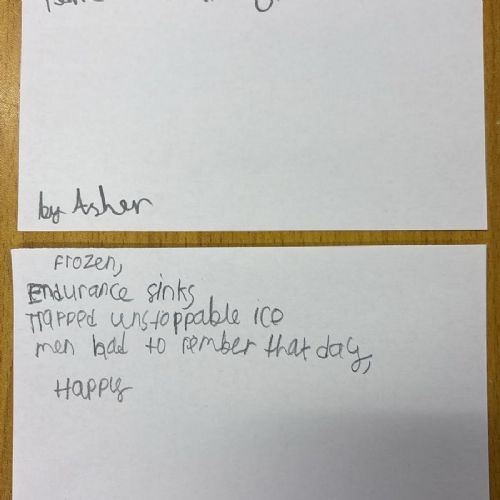 by Asher
Frozen,
Endurance sinks
Trapped unstoppable ice
men bad to rember that day,
Happy